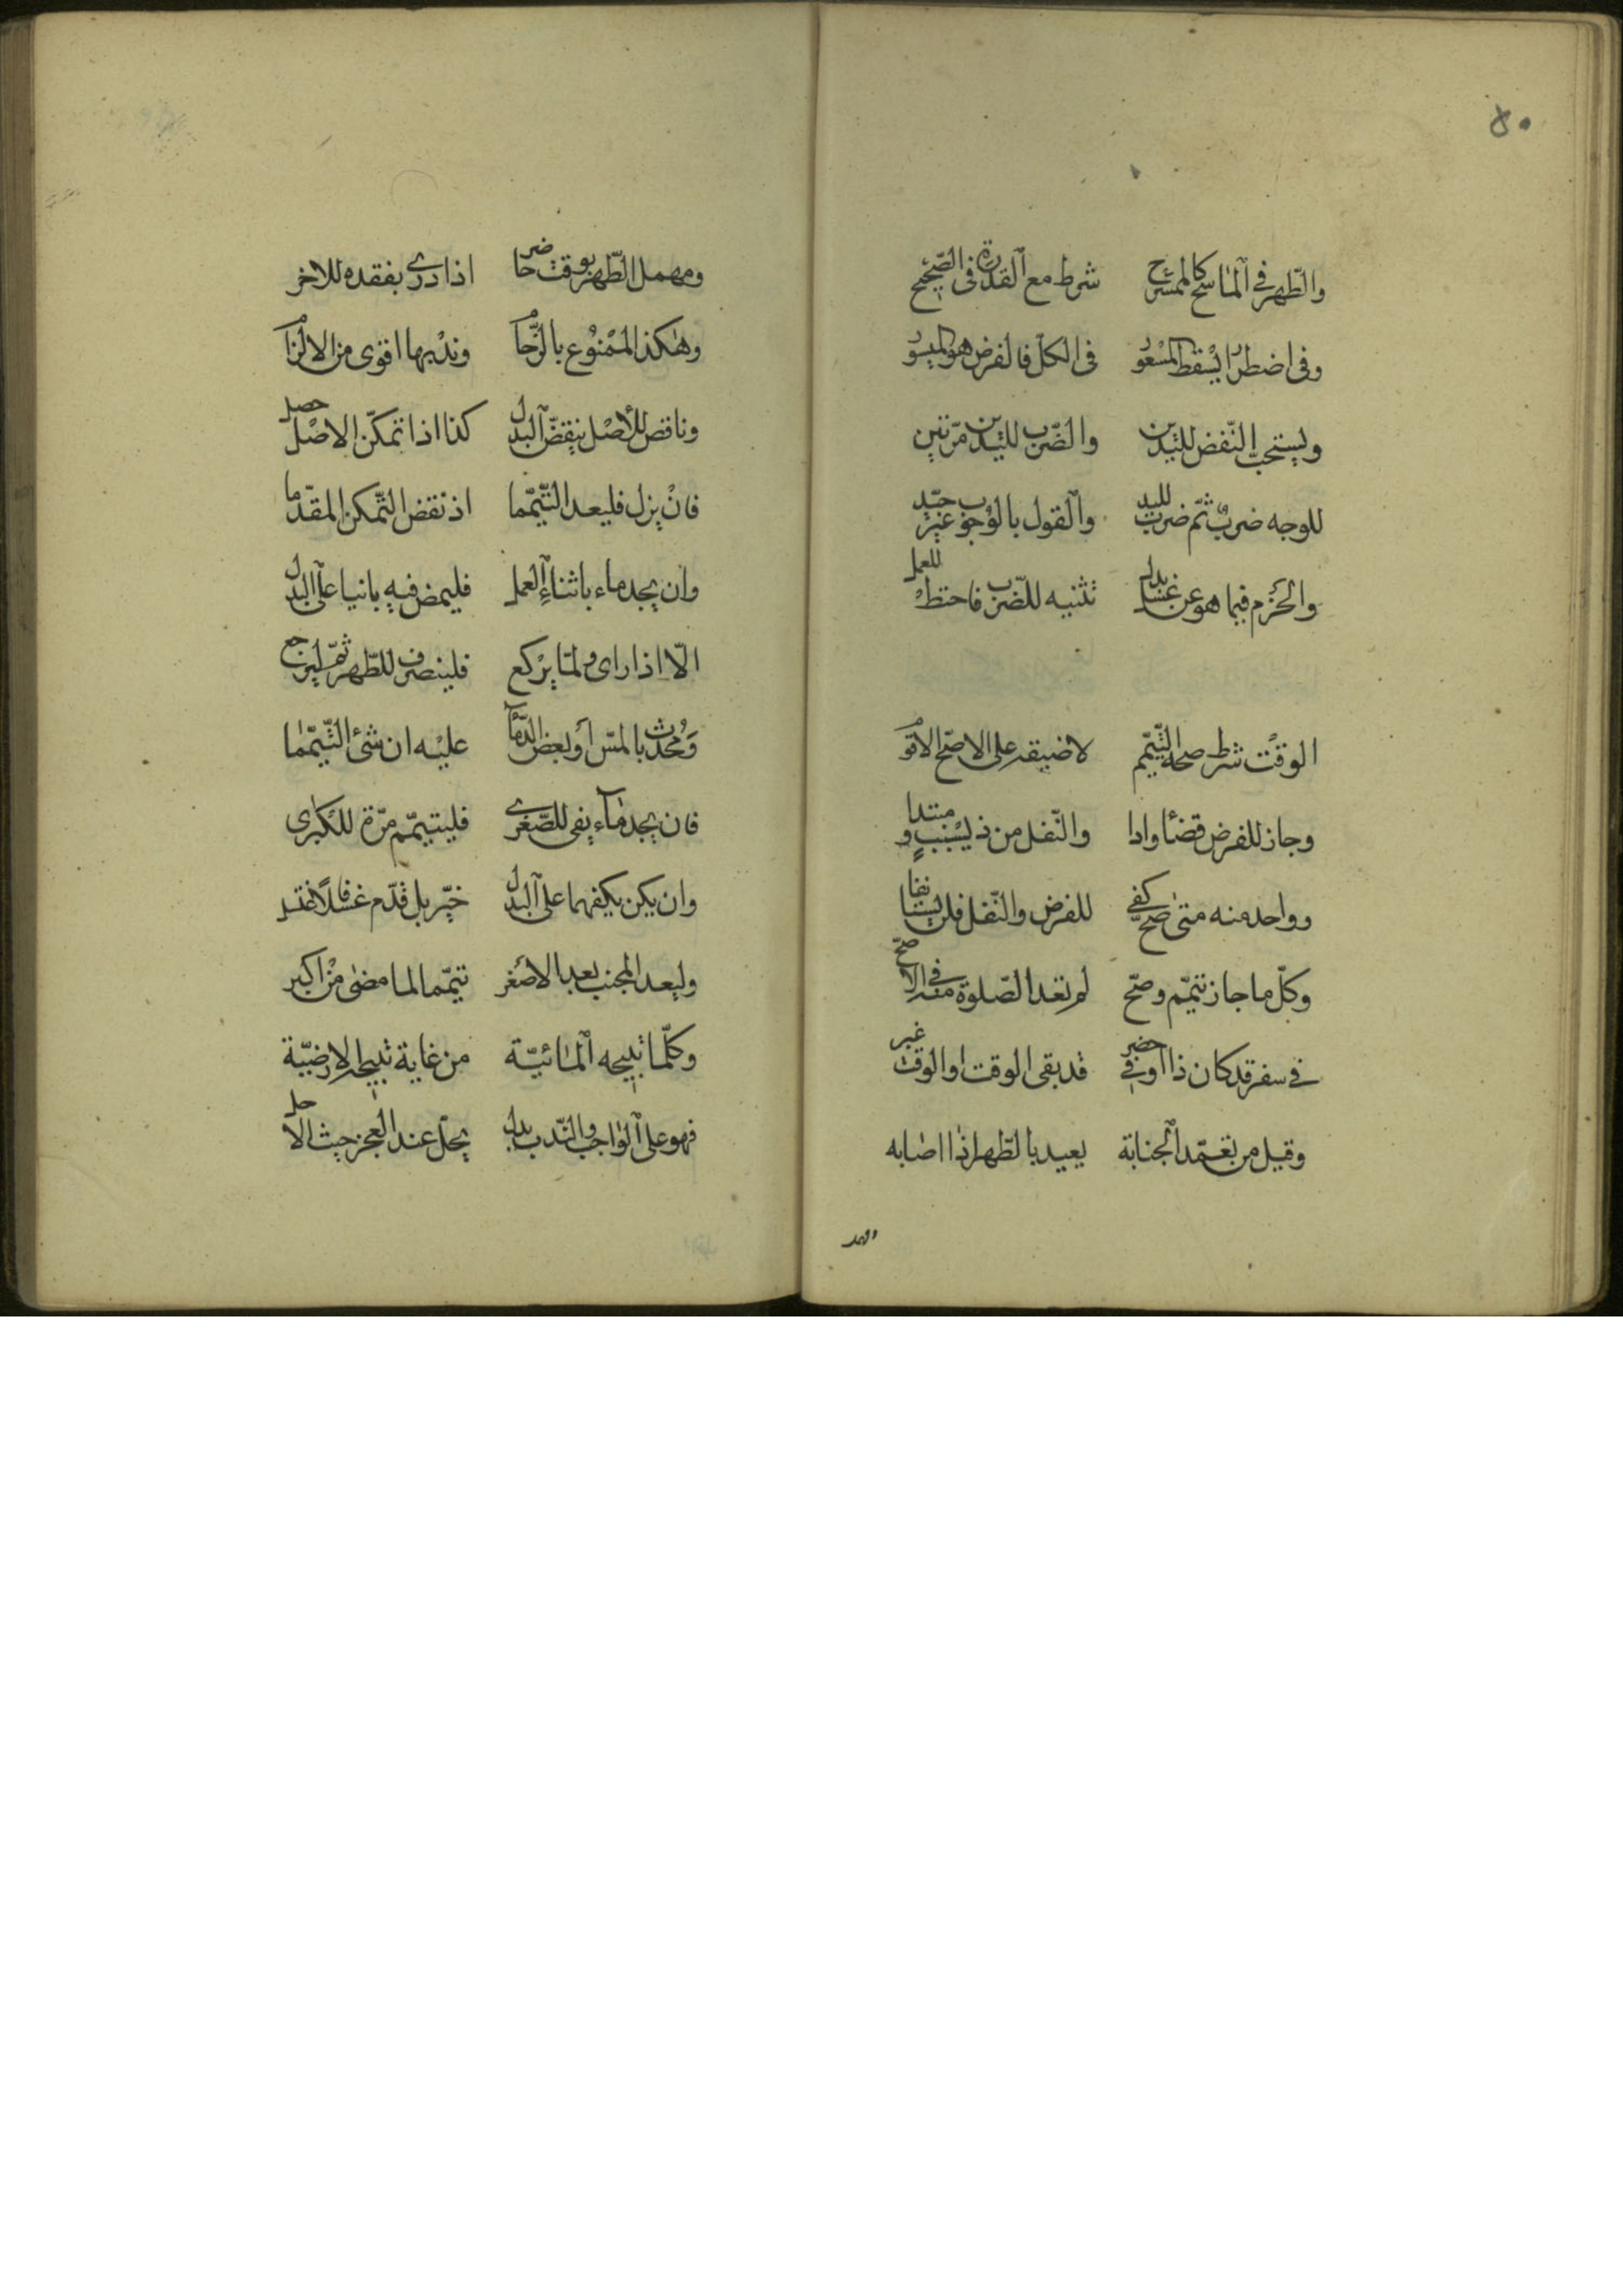 ٥٠
والطّهر في الماسح كالممسوح شرط مع القدرة في الصّحيح
وفي اضطرار يسقط المعسور في الكلّ فالفرض هو الميسور
ويستحبّ النّفض لليدين والضّرب لليدين مرّتين
للوجه ضربٌ ثمّ ضربٌ لليد والقول بالوجوب غير جيّد
والحزم فيما هو عن غسل بدل تثنيه للضّرب فاحتط للعمل
الوقت شرط صحّة التّيمّم لا ضيقه على الاصحّ الاقوم
وجاز للفرض قضاً وادا والنّفل من ذي سببٍ ومبتدا
وواحد منه متى صحّ كفى للفرض والنّفل فلن يستانفا
وكلّ ما جاز تيمّم وصحّ لم تعد الصّلوة منه في الاصحّ
في سفر قد كان ذا او في حضر قد بقى الوقت او الوقت غبر
وقيل من تعمّد الجنابة يعيد بالطّهر اذا اصابه
ومهمل الطّهر بوقت حاضر اذا درى بفقده للاخر
وهكذا الممنوع بالزّحام وندبها اقوى من الالزام
وناقض للأصل ينقض البدل كذا اذا تمكّن الاصل حصل
فان يزل فليعد التّيمّما اذ نقض التّمكن المقدّما
وان يجد ماء باثناء العمل فليمض فيه بانيا على البدل
الّا اذا راى ولمّا يركع فلينصرف للطّهر ثمّ ليرجع
ومحدث بالمسّ او بعض الدّما عليه ان شئ التّيمّما
فان يجد ماء يفى للصّغرى فليتيمّم مرّة للكبرى
وان يكن يكفهما على البدل خيّر بل قدّم غسلا فاغتسل
وليعد المجنب بعد الاصغر تيمّما لما مضى من اكبر
وكلّما تبيحه المائيّة من غاية تبيحه الارضيّة
فهو على الواجب والنّدب بدل يحلّ عند العجز حيث الاصل حل